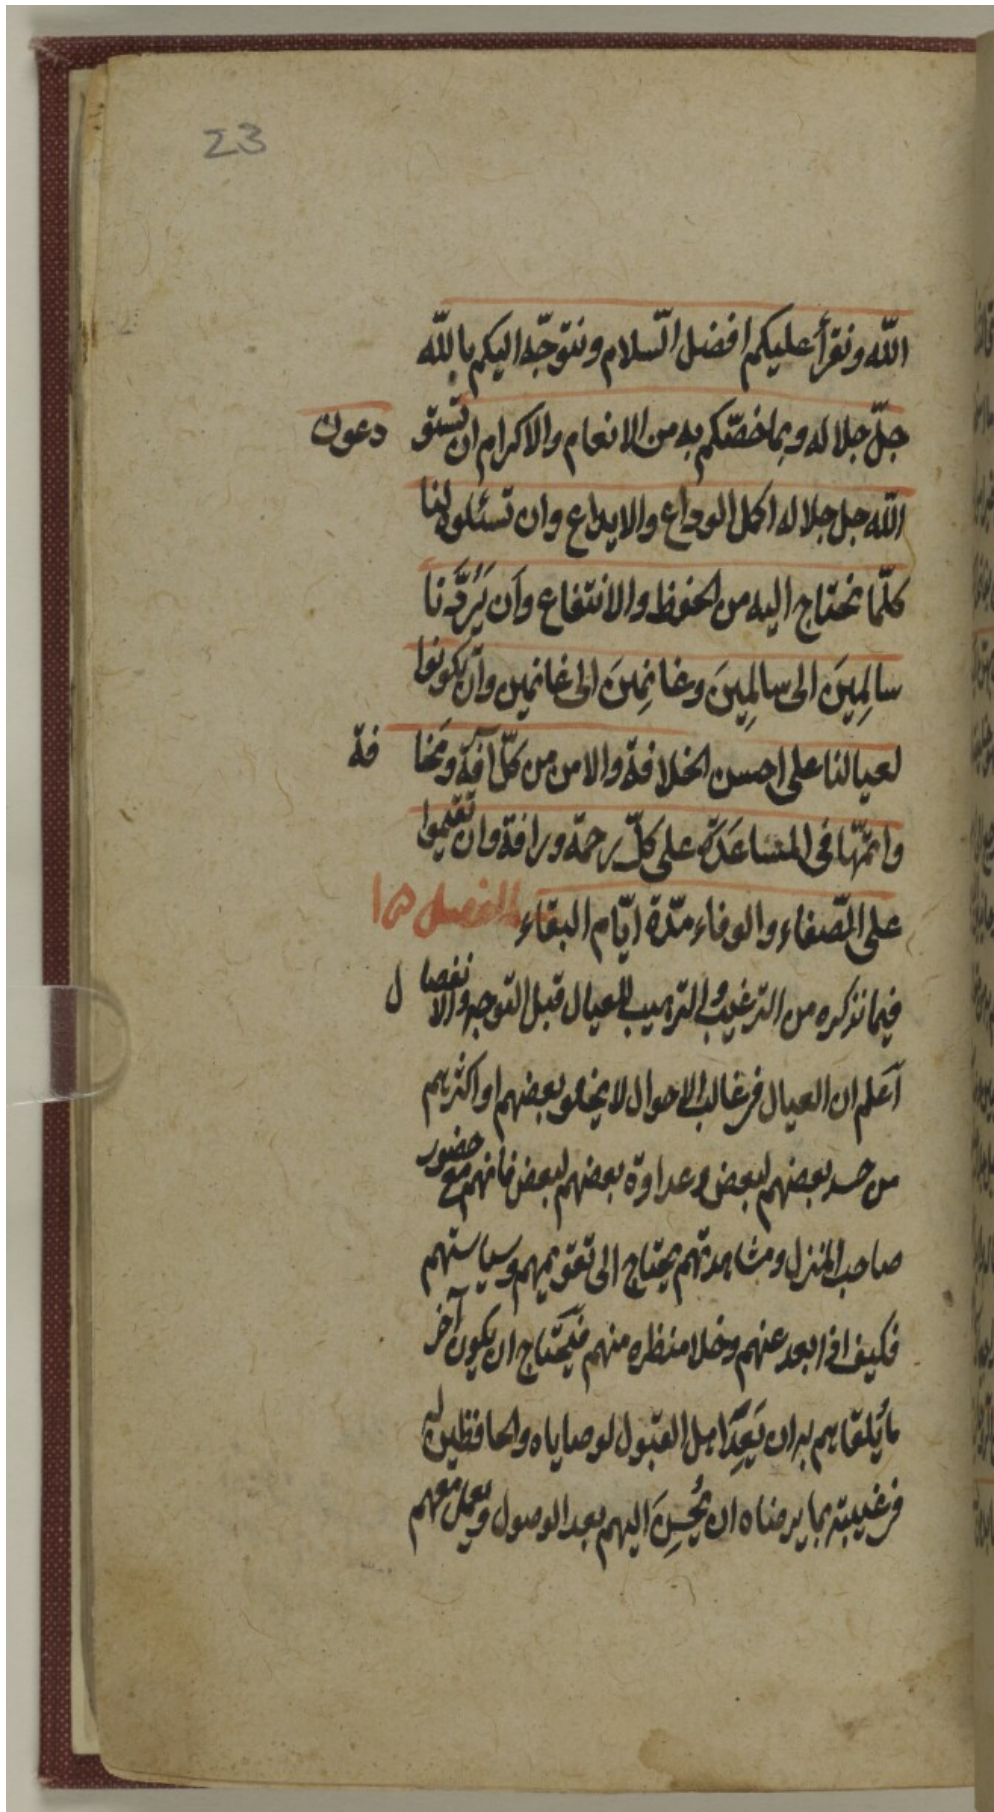 23
الله ونقرأ عليكم افضل السّلام ونتوجّه اليكم بالله
جلّ جلاله وبما خصّكم به من الانعام والاكرام ان تستودعون
الله جل جلاله اكمل الوداع والايداع وان تسئلوه لنا
كلّما نحتاج اليه من الحفظ والانتفاع وَاَن يَرُدَّنا
سالِمِينَ الى سالِمِينَ وغانِمِينَ الى غانمين وان يكونوا
لعيالنا على احسن الخلافة والامن من كلّ آفة ومخافة
واتمّها فى المساعَدَة على كلّ رحمة ورافة وان تقيموا
على الصّفاء والوفاء مدّة ايّام البقاء الفصل ١٥
فيما نذكره من الترغيب والترهيب للعيال قبل التوجه والانفصال
اعلم ان العيال فى غالب الاحوال لا يخلو بعضهم او اكثرهم
من حسد بعضهم لبعض وعداوة بعضهم لبعض فانهم مع حضور
صاحب المنزل ومشاهدتهم يحتاج الى تقويمهم وسياستهم
فكيف اذا بعد عنهم وخلا منظره منهم فيَحتاج ان يكون آخر
ما يُلقاهم به ان يَعِدَ اهل القبول لوصاياه والحافظين له
فى غيبته بما يرضاه ان يُحْسِنَ اليهم بعد الوصول ويعمل معهم